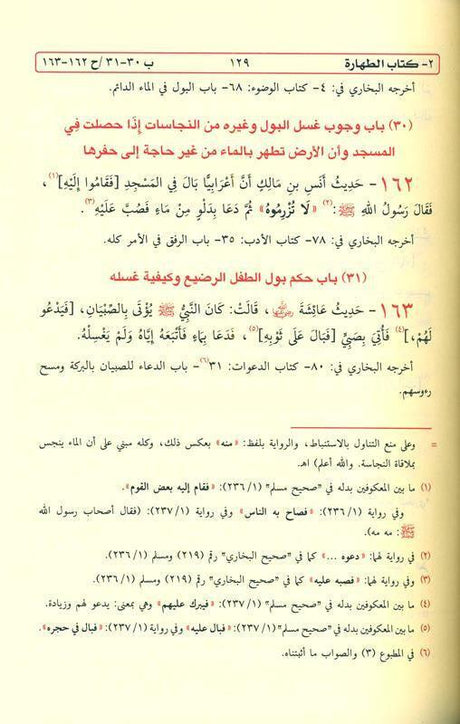 ٢- كتاب الطهارة ١٢٩ ب ٣٠-٣١/ح ١٦٢-١٦٣
أخرجه البخاري في: ٤- كتاب الوضوء: ٦٨- باب البول في الماء الدائم.
(٣٠) باب وجوب غسل البول وغيره من النجاسات إذا حصلت في
المسجد وأن الأرض تطهر بالماء من غير حاجة إلى حفرها
١٦٢- حَدِيثُ أَنَسِ بنِ مَالِكٍ أَنَّ أَعْرَابِيًّا بَالَ فِي المَسْجِدِ [فَقَامُوا إِلَيْهِ](١)،
فَقَالَ رَسُولُ اللهِ ﷺ:(٢) «لَا تُزْرِمُوهُ» ثُمَّ دَعَا بِدَلْوٍ مِنْ مَاءٍ فَصُبَّ عَلَيْهِ(٣).
أخرجه البخاري في: ٧٨- كتاب الأدب: ٣٥- باب الرفق في الأمر كله.
(٣١) باب حكم بول الطفل الرضيع وكيفية غسله
١٦٣- حَدِيثُ عَائِشَةَ رضي الله عنها، قَالَتْ: كَانَ النَّبِيُّ ﷺ يُؤْتَى بِالصِّبْيَانِ، [فَيَدْعُو
لَهُمْ،](٤) فَأُتِيَ بِصَبِيٍّ [فَبَالَ عَلَى ثَوْبِهِ](٥)، فَدَعَا بِمَاءٍ فَأَتْبَعَهُ إِيَّاهُ وَلَمْ يَغْسِلْهُ.
أخرجه البخاري في: ٨٠- كتاب الدعوات: ٣١(٦)- باب الدعاء للصبيان بالبركة ومسح
رءوسهم.
= وعلى منع التناول بالاستنباط، والرواية بلفظ: «منه» بعكس ذلك، وكله مبني على أن الماء ينجس
بملاقاة النجاسة. والله أعلم) اهـ.
(١) ما بين المعكوفين بدله في "صحيح مسلم" (١/ ٢٣٦): «فقام إليه بعض القوم».
وفي رواية (١/ ٢٣٦): «فصاح به الناس» وفي رواية (١/ ٢٣٧): (فقال أصحاب رسول الله
ﷺ: مه مه).
(٢) في رواية لهما: «دعوه ...» كما في "صحيح البخاري" رقم (٢١٩) ومسلم (١/ ٢٣٦).
(٣) وفي رواية لهما: «فصبه عليه» كما في "صحيح البخاري" رقم (٢١٩) ومسلم (١/ ٢٣٦).
(٤) ما بين المعكوفين بدله في "صحيح مسلم" (١/ ٢٣٧): «فيبرك عليهم» وهي بمعنى: يدعو لهم وزيادة.
(٥) ما بين المعكوفين بدله في "صحيح مسلم" (١/ ٢٣٧): «فبال عليه» وفي رواية (١/ ٢٣٧): «فبال في حجره».
(٦) في المطبوع (٣) والصواب ما أثبتناه.